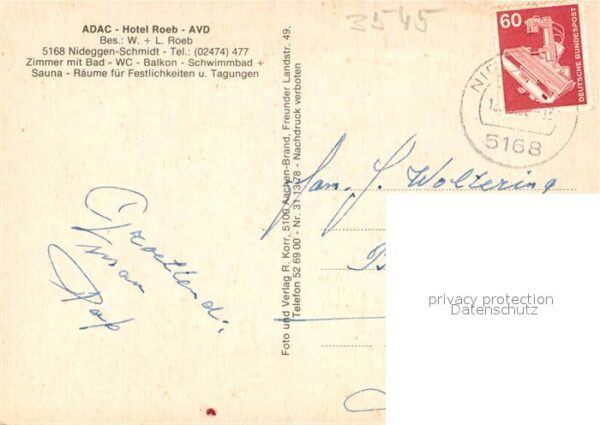 ADAC - Hotel Roeb - AVD
Bes.: W. + L. Roeb
5168 Nideggen-Schmidt - Tel.: (02474) 477
Zimmer mit Bad - WC - Balkon - Schwimmbad +
Sauna - Räume für Festlichkeiten u. Tagungen
3545
60
DEUTSCHE BUNDESPOST
5168
Foto und Verlag R. Korr, 5100 Aachen-Brand, Freunder Landstr. 49.
Telefon 52 69 00 - Nr. 31 13/78 - Nachdruck verboten
Fam. J. Woltering
privacy protection
Datenschutz